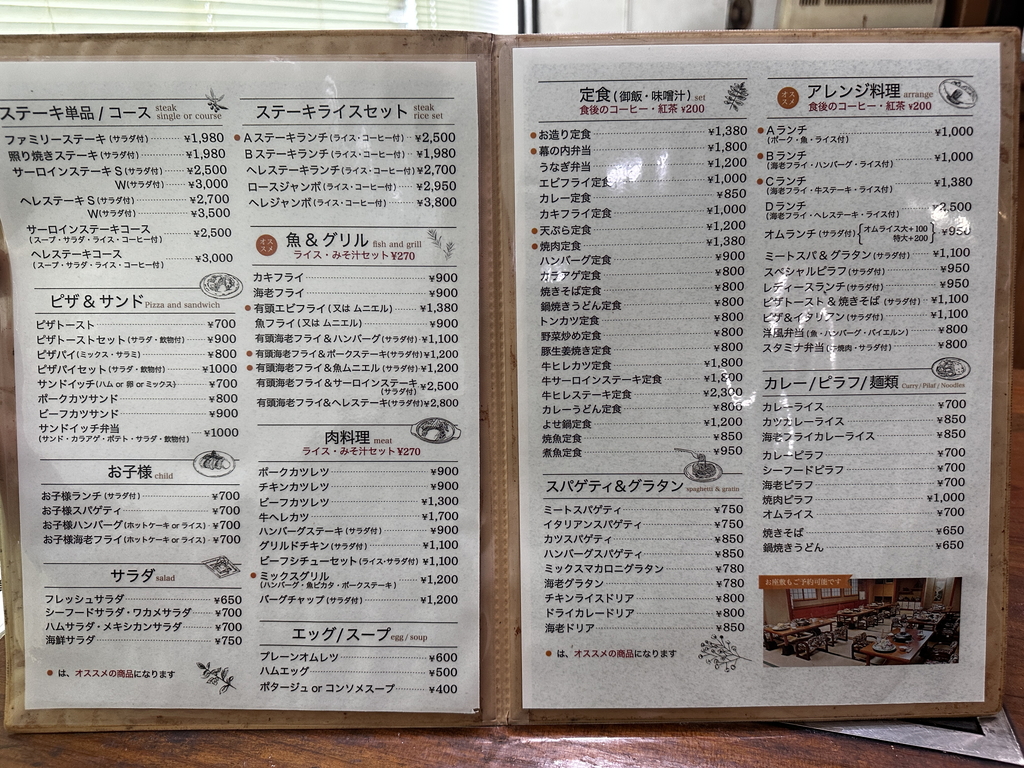 ステーキ単品 / コース steak single or course
ファミリーステーキ(サラダ付) ¥1,980
照り焼きステーキ(サラダ付) ¥1,980
サーロインステーキ S(サラダ付) ¥2,500
W(サラダ付) ¥3,000
ヘレステーキ S(サラダ付) ¥2,700
W(サラダ付) ¥3,500
サーロインステーキコース ¥2,500
(スープ・サラダ・ライス・コーヒー付)
ヘレステーキコース ¥3,000
(スープ・サラダ・ライス・コーヒー付)
ピザ & サンド Pizza and sandwich
ピザトースト ¥700
ピザトーストセット(サラダ・飲物付) ¥900
ピザパイ(ミックス・サラミ) ¥800
ピザパイセット(サラダ・飲物付) ¥1000
サンドイッチ(ハム or 卵 or ミックス) ¥700
ポークカツサンド ¥800
ビーフカツサンド ¥900
サンドイッチ弁当 ¥1000
(サンド・カラアゲ・ポテト・サラダ・飲物付)
お子様 child
お子様ランチ(サラダ付) ¥700
お子様スパゲティ ¥700
お子様ハンバーグ(ホットケーキ or ライス) ¥700
お子様海老フライ(ホットケーキ or ライス) ¥700
サラダ salad
フレッシュサラダ ¥650
シーフードサラダ・ワカメサラダ ¥700
ハムサラダ・メキシカンサラダ ¥700
海鮮サラダ ¥750
● は、オススメの商品になります
ステーキライスセット steak rice set
● Aステーキランチ(ライス・コーヒー付) ¥2,500
Bステーキランチ(ライス・コーヒー付) ¥1,980
ヘレステーキランチ(ライス・コーヒー付) ¥2,700
ロースジャンボ(ライス・コーヒー付) ¥2,950
ヘレジャンボ(ライス・コーヒー付) ¥3,800
オススメ 魚 & グリル fish and grill
ライス・みそ汁セット ¥270
カキフライ ¥900
海老フライ ¥900
● 有頭エビフライ(又は ムニエル) ¥1,380
魚フライ(又は ムニエル) ¥900
有頭海老フライ&ハンバーグ(サラダ付) ¥1,100
● 有頭海老フライ&ポークステーキ(サラダ付) ¥1,200
● 有頭海老フライ&魚ムニエル(サラダ付) ¥1,200
有頭海老フライ&サーロインステーキ ¥2,500
(サラダ付)
有頭海老フライ&ヘレステーキ(サラダ付) ¥2,800
肉料理 meat
ライス・みそ汁セット ¥270
ポークカツレツ ¥900
チキンカツレツ ¥900
ビーフカツレツ ¥1,300
牛ヘレカツ ¥1,700
ハンバーグステーキ(サラダ付) ¥900
グリルドチキン(サラダ付) ¥1,100
ビーフシチューセット(ライス・サラダ付) ¥1,100
● ミックスグリル ¥1,200
(ハンバーグ・魚ピカタ・ポークステーキ)
バーグチャップ(サラダ付) ¥1,200
エッグ / スープ egg / soup
プレーンオムレツ ¥600
ハムエッグ ¥500
ポタージュ or コンソメスープ ¥400
定食(御飯・味噌汁) set
食後のコーヒー・紅茶 ¥200
● お造り定食 ¥1,380
● 幕の内弁当 ¥1,800
うなぎ弁当 ¥1,200
エビフライ定食 ¥1,000
カレー定食 ¥850
カキフライ定食 ¥1,000
● 天ぷら定食 ¥1,200
● 焼肉定食 ¥1,380
ハンバーグ定食 ¥900
カラアゲ定食 ¥800
焼きそば定食 ¥800
鍋焼きうどん定食 ¥800
トンカツ定食 ¥800
野菜炒め定食 ¥800
豚生姜焼き定食 ¥800
牛ヒレカツ定食 ¥1,800
牛サーロインステーキ定食 ¥1,800
牛ヒレステーキ定食 ¥2,300
カレーうどん定食 ¥800
よせ鍋定食 ¥1,200
焼魚定食 ¥850
煮魚定食 ¥950
スパゲティ&グラタン spaghetti & gratin
ミートスパゲティ ¥750
イタリアンスパゲティ ¥750
カツスパゲティ ¥850
ハンバーグスパゲティ ¥850
ミックスマカロニグラタン ¥780
海老グラタン ¥780
チキンライスドリア ¥800
ドライカレードリア ¥800
海老ドリア ¥850
● は、オススメの商品になります
オススメ アレンジ料理 arrange
食後のコーヒー・紅茶 ¥200
● Aランチ ¥1,000
(ポーク・魚・ライス付)
● Bランチ ¥1,000
(海老フライ・ハンバーグ・ライス付)
● Cランチ ¥1,380
(海老フライ・牛ステーキ・ライス付)
Dランチ ¥2,500
(海老フライ・ヘレステーキ・ライス付)
オムランチ(サラダ付) {オムライス大+100 特大+200} ¥950
ミートスパ & グラタン(サラダ付) ¥1,100
スペシャルピラフ(サラダ付) ¥950
レディースランチ(サラダ付) ¥950
ピザトースト & 焼きそば(サラダ付) ¥1,100
ピザ&イタリアン(サラダ付) ¥1,100
洋風弁当(魚・ハンバーグ・バイエルン) ¥800
スタミナ弁当(牛焼肉・サラダ付) ¥800
カレー/ピラフ/麺類 Curry / Pilaf / Noodles
カレーライス ¥700
カツカレーライス ¥850
海老フライカレーライス ¥850
カレーピラフ ¥700
シーフードピラフ ¥700
海老ピラフ ¥700
焼肉ピラフ ¥1,000
オムライス ¥700
焼きそば ¥650
鍋焼きうどん ¥650
お座敷もご予約可能です